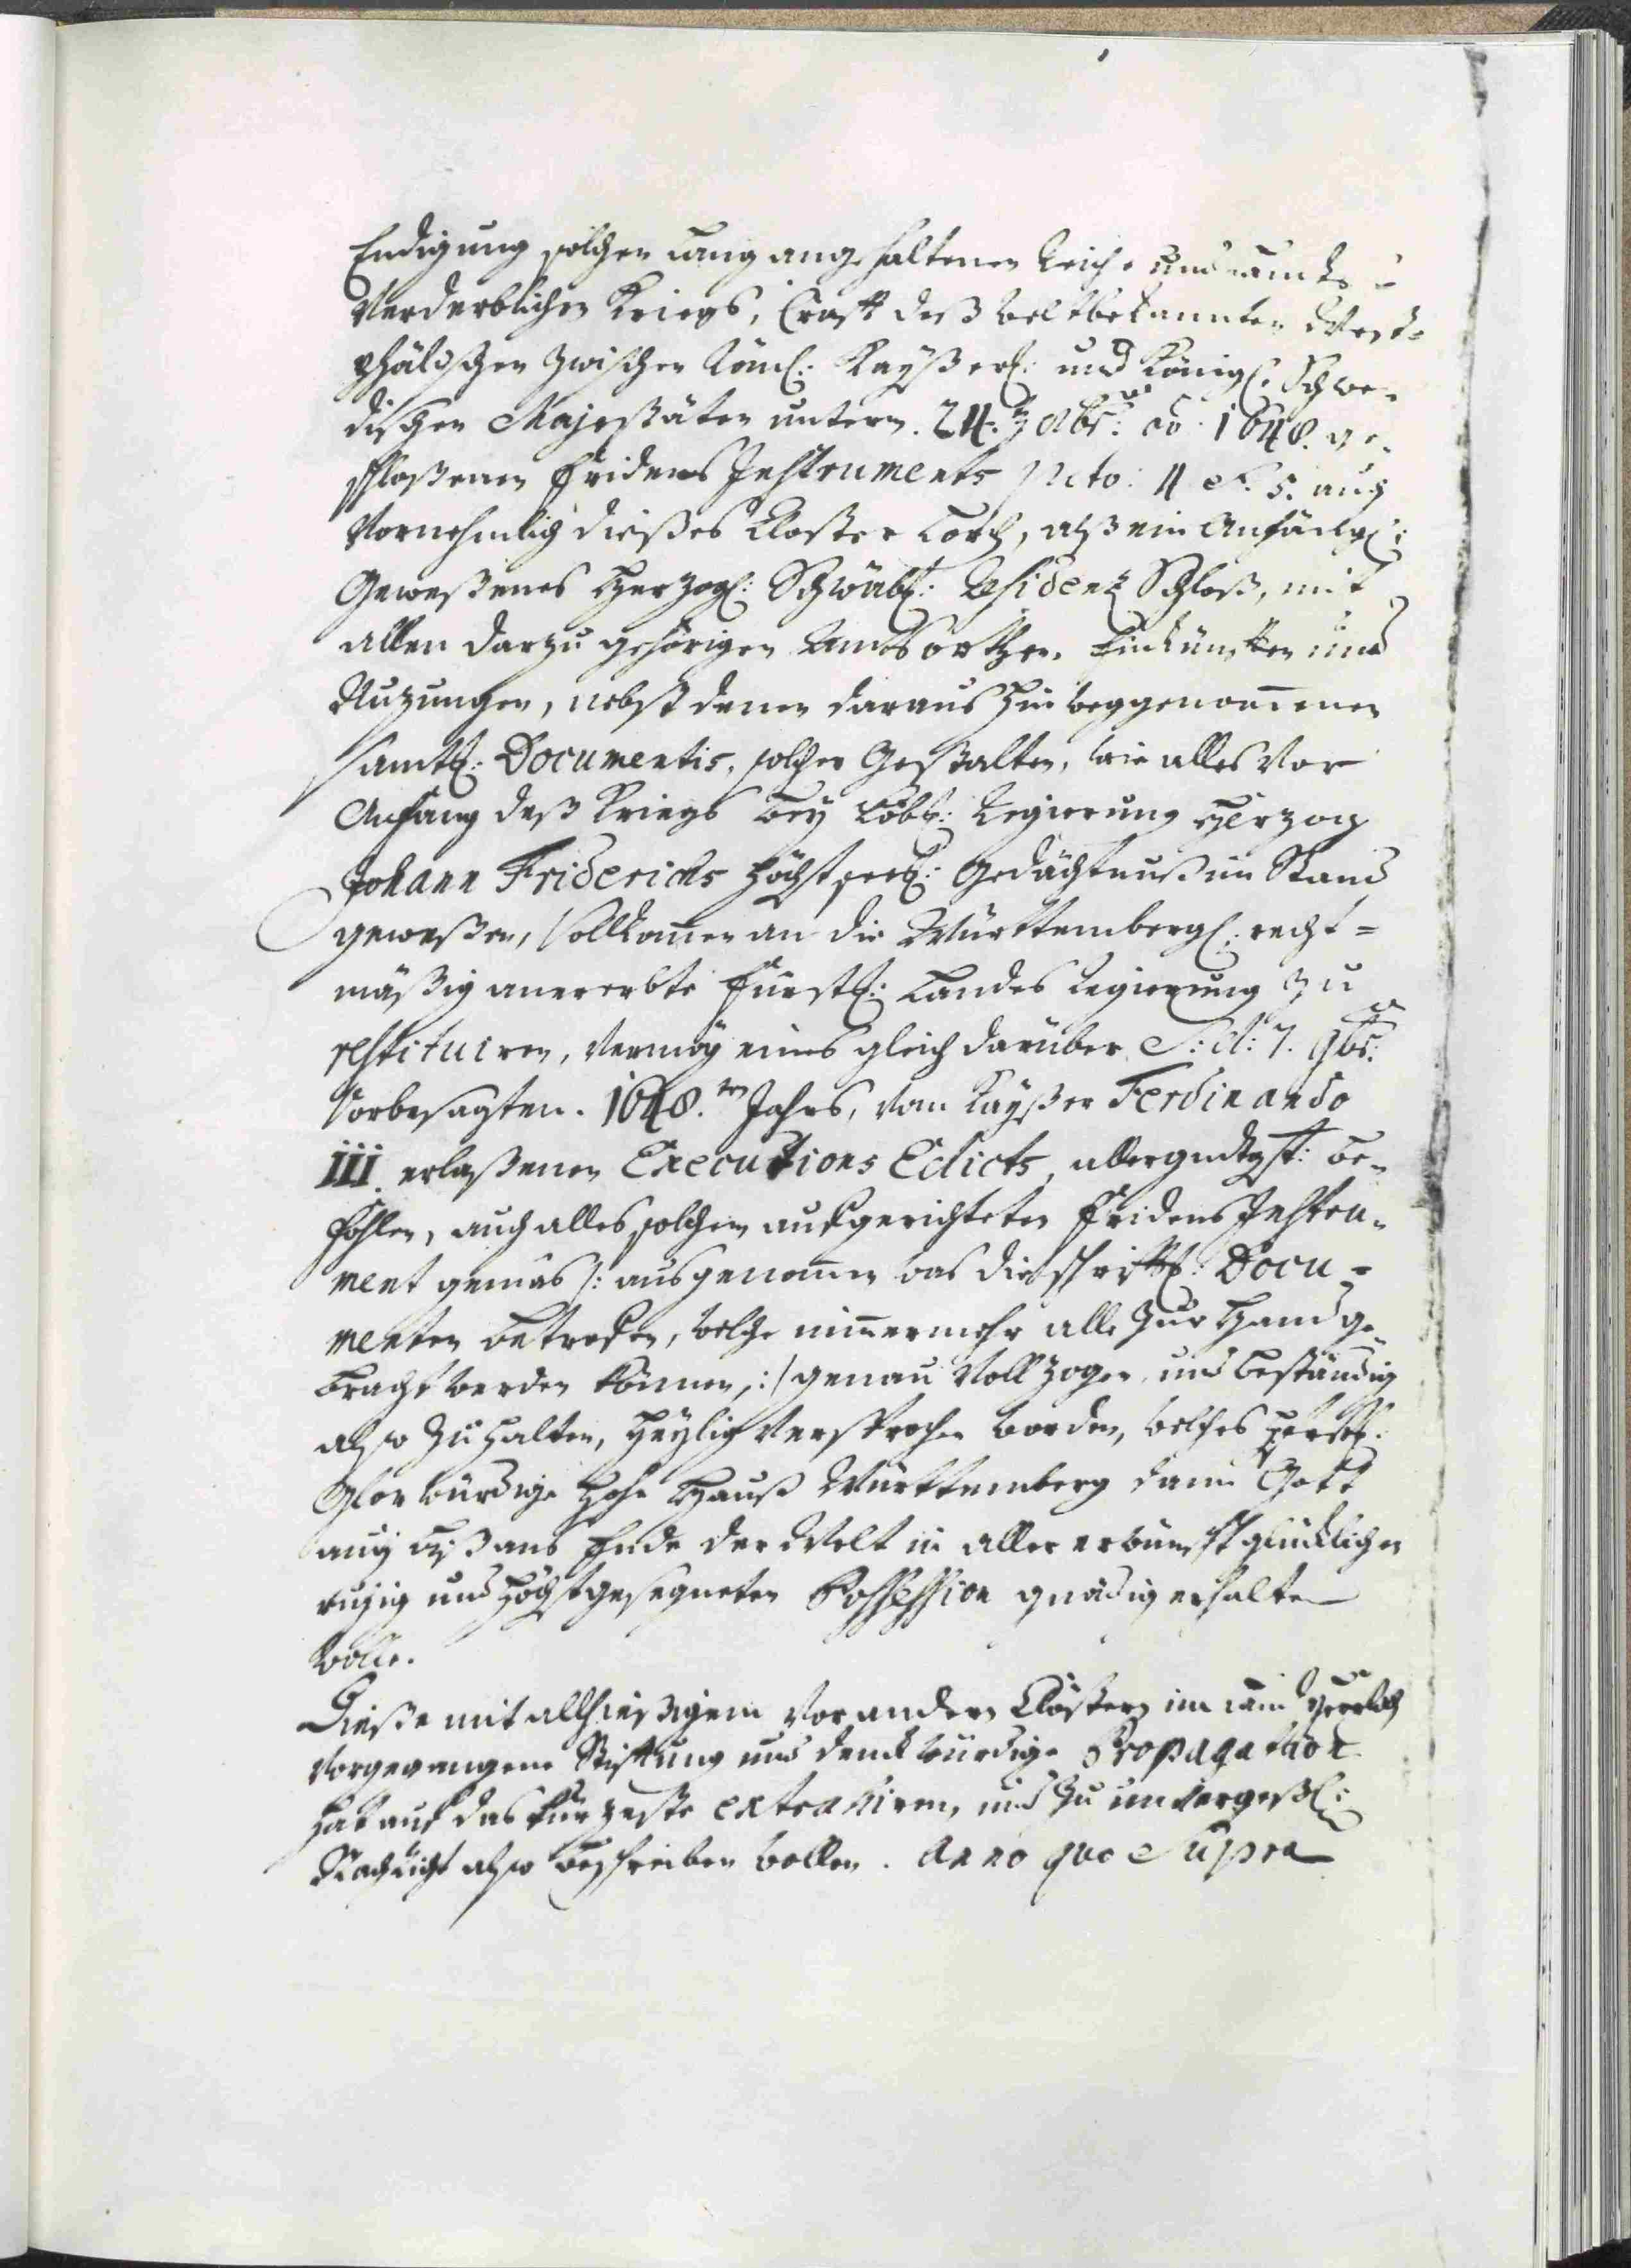 Endigung solchen lang angehaltenen Reichs und Landts
Verderblichen Kriegs, Crafft deß weltbekannten West-
phälischen zwischen Röm: Kayßerl: und Königl: Schwe-
dischen Majestäten untern 24. 8br: ao 1648. ge-
schloßenen Fridens Instruments pcto: 4 et 5. auch
Vornehmlich dießes Closter Lorch, alß ein Anfängl:
Geweßenes Herzogl: Schwäb: Residentz Schloß, mit
allen darzu gehörigen Ambtsorthen, Einkünfften und
Nuzungen, nebst denen daraus hinweggenommenen
samtl: Documentis, solcher Gestalten, wie alles Vor
Anfang deß Kriegs bey Löbl: Regierung Herzog
Johann Friderichs höchstseel: Gedächtnuß im Stand
geweßen, Vollkommen an die Württembergl: recht-
mäßig anererbte Fürstl: Landes Regierung zu
restituiren, vermög eines gleich darüber S: d: 7. 9br:
Vorbesagten 1648.ten Jahrs, von Kayßer Ferdinando
III. erlaßenen Executions Edicts, allergndgst: be-
fohlen, auch alles solchem aufgerichteten Fridens Instru-
ment gemäs /: ausgenommen was die schrifftl: Docu-
menten betreffen, welche nimmermehr alle zur Hand ge-
bracht werden können, :/ genau Vollzogen, und beständig
also zu halten, heylig Versprochen worden, welches
Glorwürdige hohe Hauß Württemberg dann Gott
auch biß ans Ende der Welt in aller erwünscht glücklichen
ruhig und höchstgesegneten Possession gnädig erhalten
wolle.
Dieße mit allhießigem Vor andern Clöstern im Land
Vorgegangene Stifftung und denckwürdige Propagation
hab auf das kürzeste extrahiren, und zu unvergeßl:
Nachricht also beschreiben wollen. Anno quo Supra